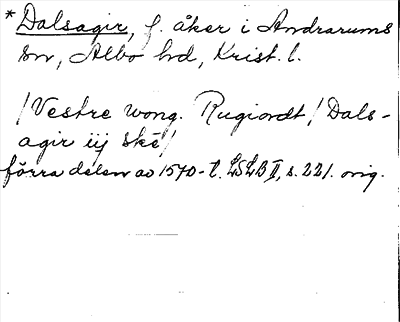 *Dalsagir, f. åker i Andrarums
sn, Albo hd, Krist. l.
/Vestre wong. Rugiordt,/ Dals-
agir iij skē/
förra delen av 1570-t. LSLB II, s. 221. orig.